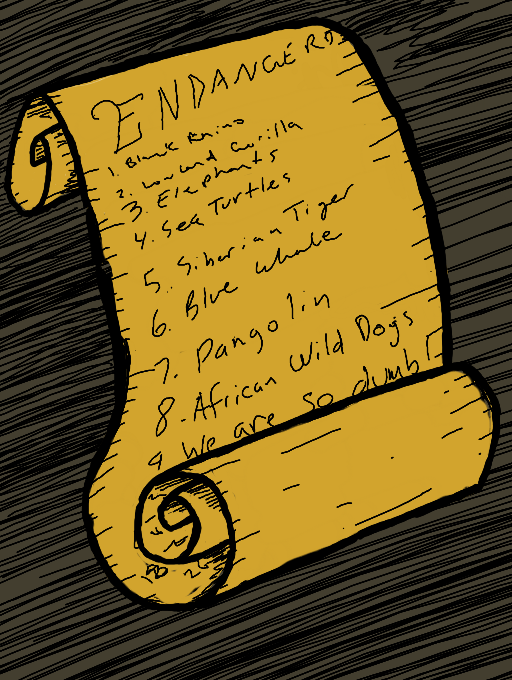 ENDANGERD
1. Black Rhino
2. Lowland Gorilla
3. Elephants
4. Sea Turtles
5. Siberian Tiger
6. Blue Whale
7. Pangolin
8. African Wild Dogs
9 We are so dumb!